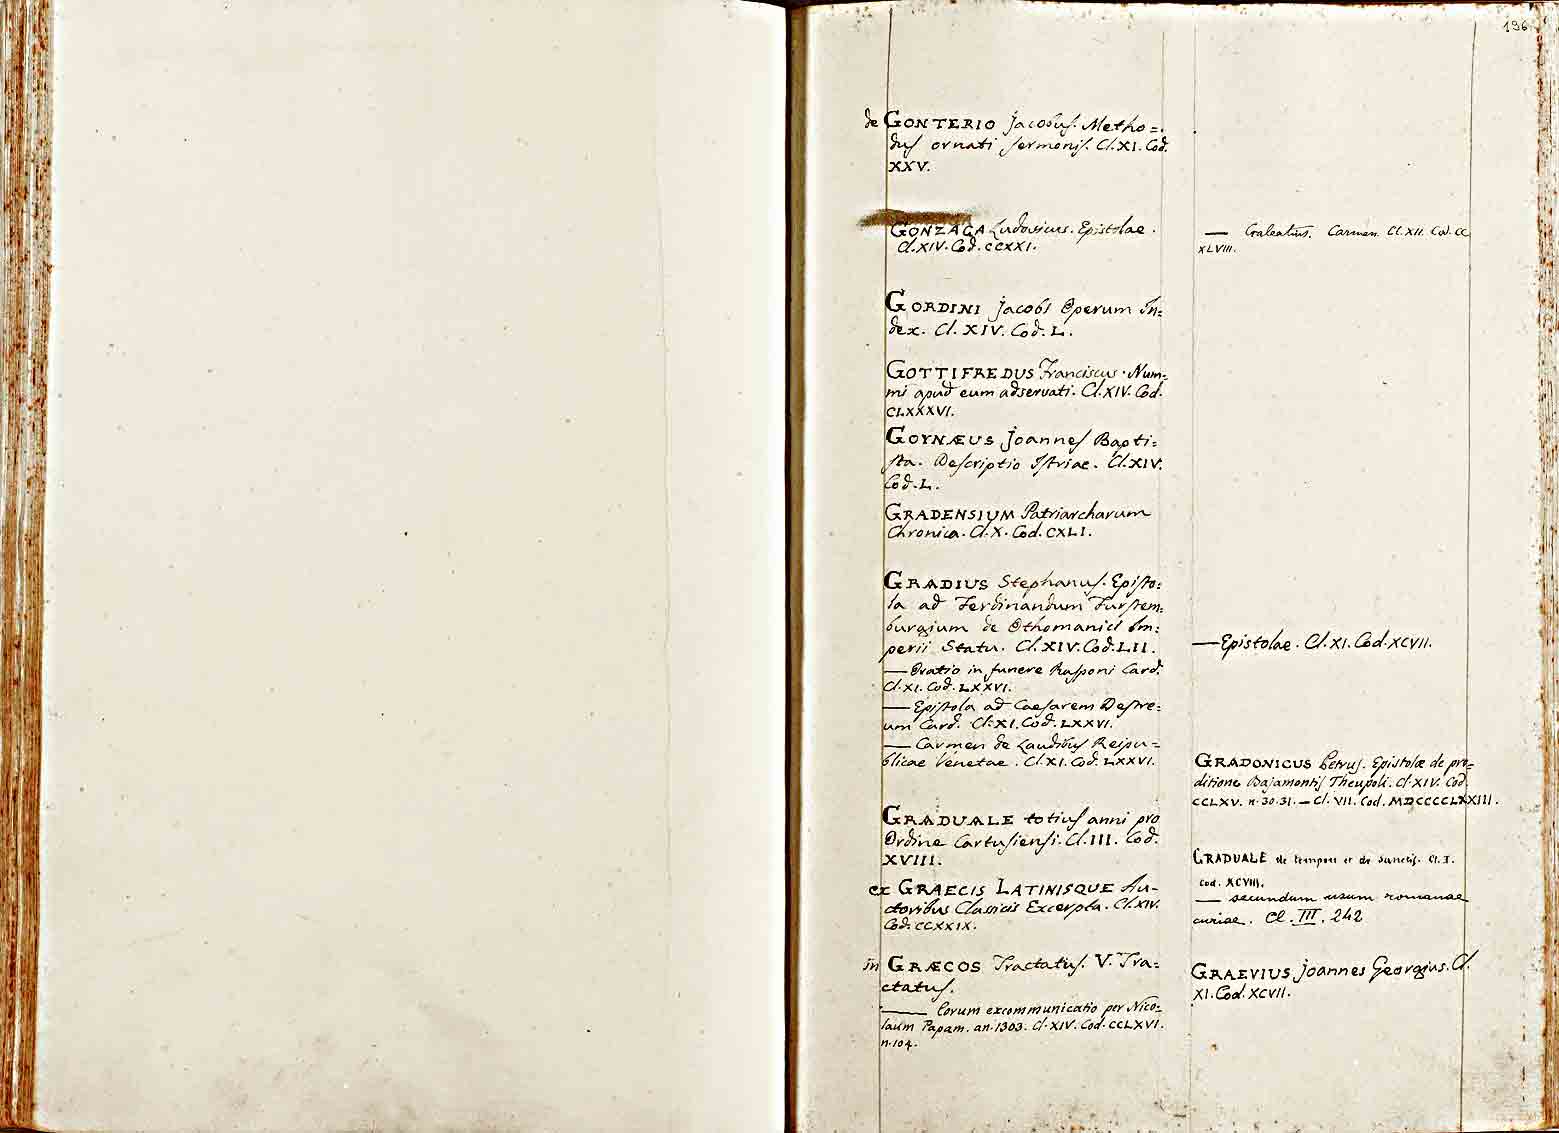 196
de GONTERIO Jacobus. Metho=
dus ornati sermonis. Cl. XI. Cod.
XXV.
GONZAGA Ludovicus. Epistolae.
Cl. XIV. Cod. CCXXI.
GORDINI Jacobi Operum In=
dex. Cl. XIV. Cod. L.
GOTTIFREDUS Franciscus. Num=
mi apud eum adservati. Cl. XIV. Cod.
CLXXXVI.
GOYNÆUS Joannes Bapti=
sta. Descriptio Istriae. Cl. XIV.
Cod. L.
GRADENSIUM Patriarcharum
Chronica. Cl. X. Cod. CXLI.
GRADIUS Stephanus. Episto=
la ad Ferdinandum Fursten=
burgium de Othomanici Im=
perii Statu. Cl. XIV. Cod. LII.
— Oratio in funere Rasponi Card.
Cl. XI. Cod. LXXVI.
— Epistola ad Caesarem Destre=
um Card. Cl. XI. Cod. LXXVI.
— Carmen de Laudibus Reipu=
blicae Venetae. Cl. XI. Cod. LXXVI.
GRADUALE totius anni pro
Ordine Cartusiensi. Cl. III. Cod.
XVIII.
ex GRAECIS LATINISQUE Au-
ctoribus Classicis Excerpta. Cl. XIV.
Cod. CCXXIX.
in GRÆCOS Tractatus. V. Tra=
ctatus.
— Eorum excommunicatio per Nico=
laum Papam. an. 1303. Cl. XIV. Cod. CCLXVI.
n. 104.
— Galeatius. Carmen. Cl. XII. Cod. CC
XLVIII.
— Epistolae. Cl. XI. Cod. XCVII.
GRADONICUS Petrus. Epistolæ de pro=
ditione Bajamontis Theupoli. Cl. XIV. Cod.
CCLXV. n. 30. 31. — Cl. VII. Cod. MDCCCCLXXIII.
GRADUALE de tempore et de sanctis. Cl. I.
Cod. XCVIII.
— secundum usum romanae
curiae. Cl. III. 242
GRAEVIUS Joannes Georgius. Cl.
XI. Cod. XCVII.